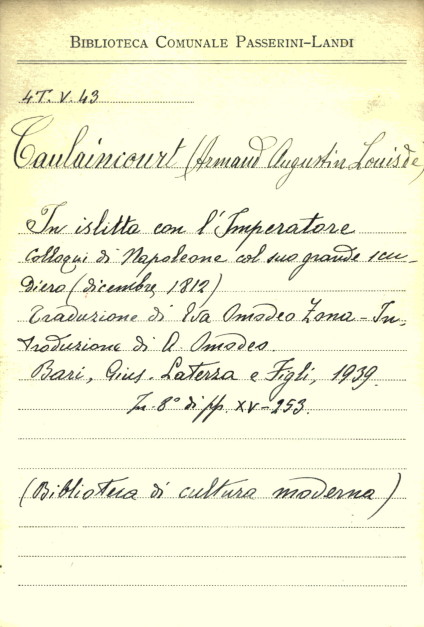 BIBLIOTECA COMUNALE PASSERINI-LANDI
4T. V. 43
Caulaincourt (Armand Augustin Louis de)
In islitta con l'Imperatore
Colloqui di Napoleone col suo grande scu-
diero (dicembre, 1812)
Traduzione di Eva Omodeo Zona - In-
troduzione di A. Omodeo.
Bari, Gius. Laterza e Figli, 1939.
In-8° di pp. XV-253.
(Biblioteca di cultura moderna)